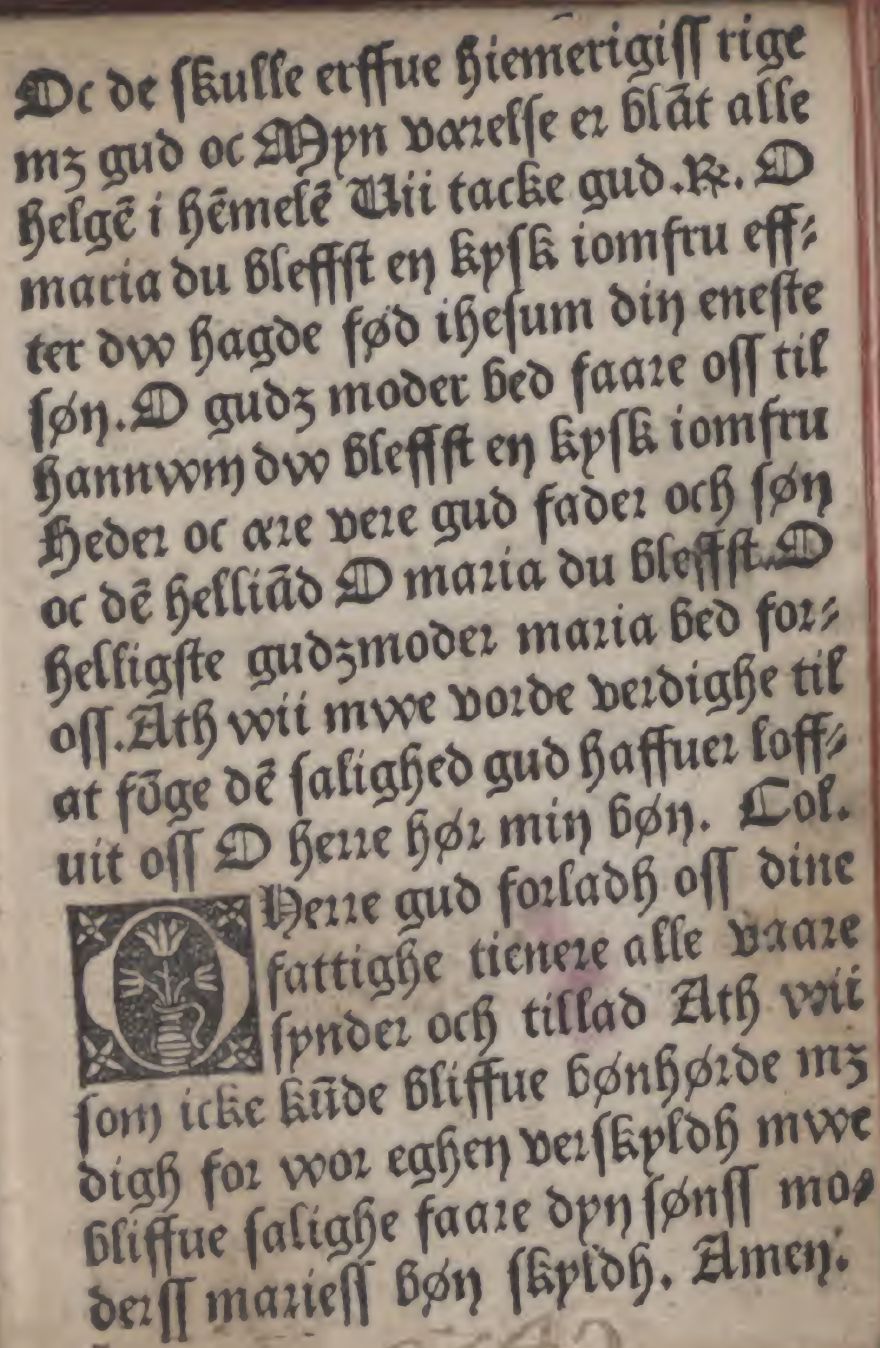 Oc de skulle erffue hiemerigiss rige
mz gud oc Myn værelse er blāt alle
helgē i hēmelē Uii tacke gud .R. O
maria du bleffst en kysk iomfru eff⸗
ter dw hagde fød ihesum din eneste
søn. O gudz moder bed faare oss til
hannwm dw bleffst en kysk iomfru
Heder oc ære vere gud fader och søn
oc dē helliād O maria du bleffst. O
helligste gudzmoder maria bed for⸗
oss. Ath wii mwe vorde verdighe til
at fōge dē salighed gud haffuer loff⸗
uit oss O herre hør min bøn. Col.
O Herre gud forladh oss dine
fattighe tienere alle vaare
synder och tillad Ath wii
som icke kūde bliffue bønhørde mz
digh for wor eghen verskyldh mwe
bliffue salighe faare dyn sønss mo⸗
derss mariess bøn skyldh. Amen.